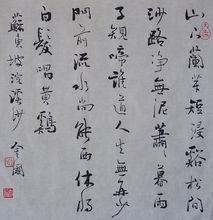 山下蘭芽短浸谿松間
沙路淨無泥蕭〻暮雨
子規啼誰道人生無再少
門前流水尚能西休將
白髮唱黃鷄
蘇東坡浣溪沙